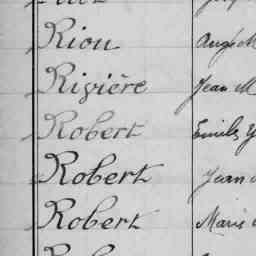 Riou Ange M
Rivière Jean M
Robert Emile Y
Robert Jean
Robert Marie